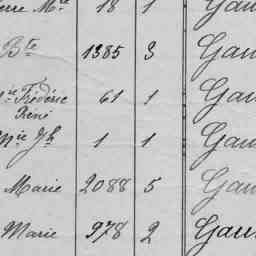 erre Mie 18 1 Gau
Bte 1385 3 Gau
re Frédéric 61 1 Gau
René
Mie Jh 1 1 Gau
Marie 2088 5 Gau
Marie 978 2 Gau